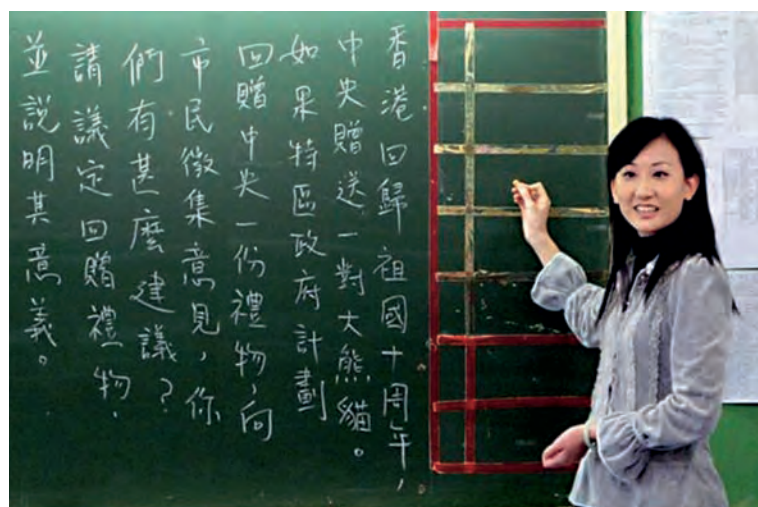 香港回歸祖國十周年，
中央贈送一對大熊貓。
如果特區政府計劃
回贈中央一份禮物，向
市民徵集意見，你
們有甚麼建議？
請議定回贈禮物，
並說明其意義。